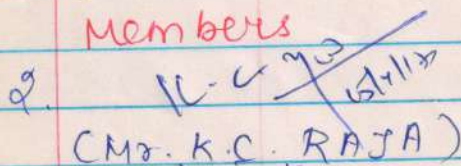 Members
2.
(Mr. K.C. RAJA)